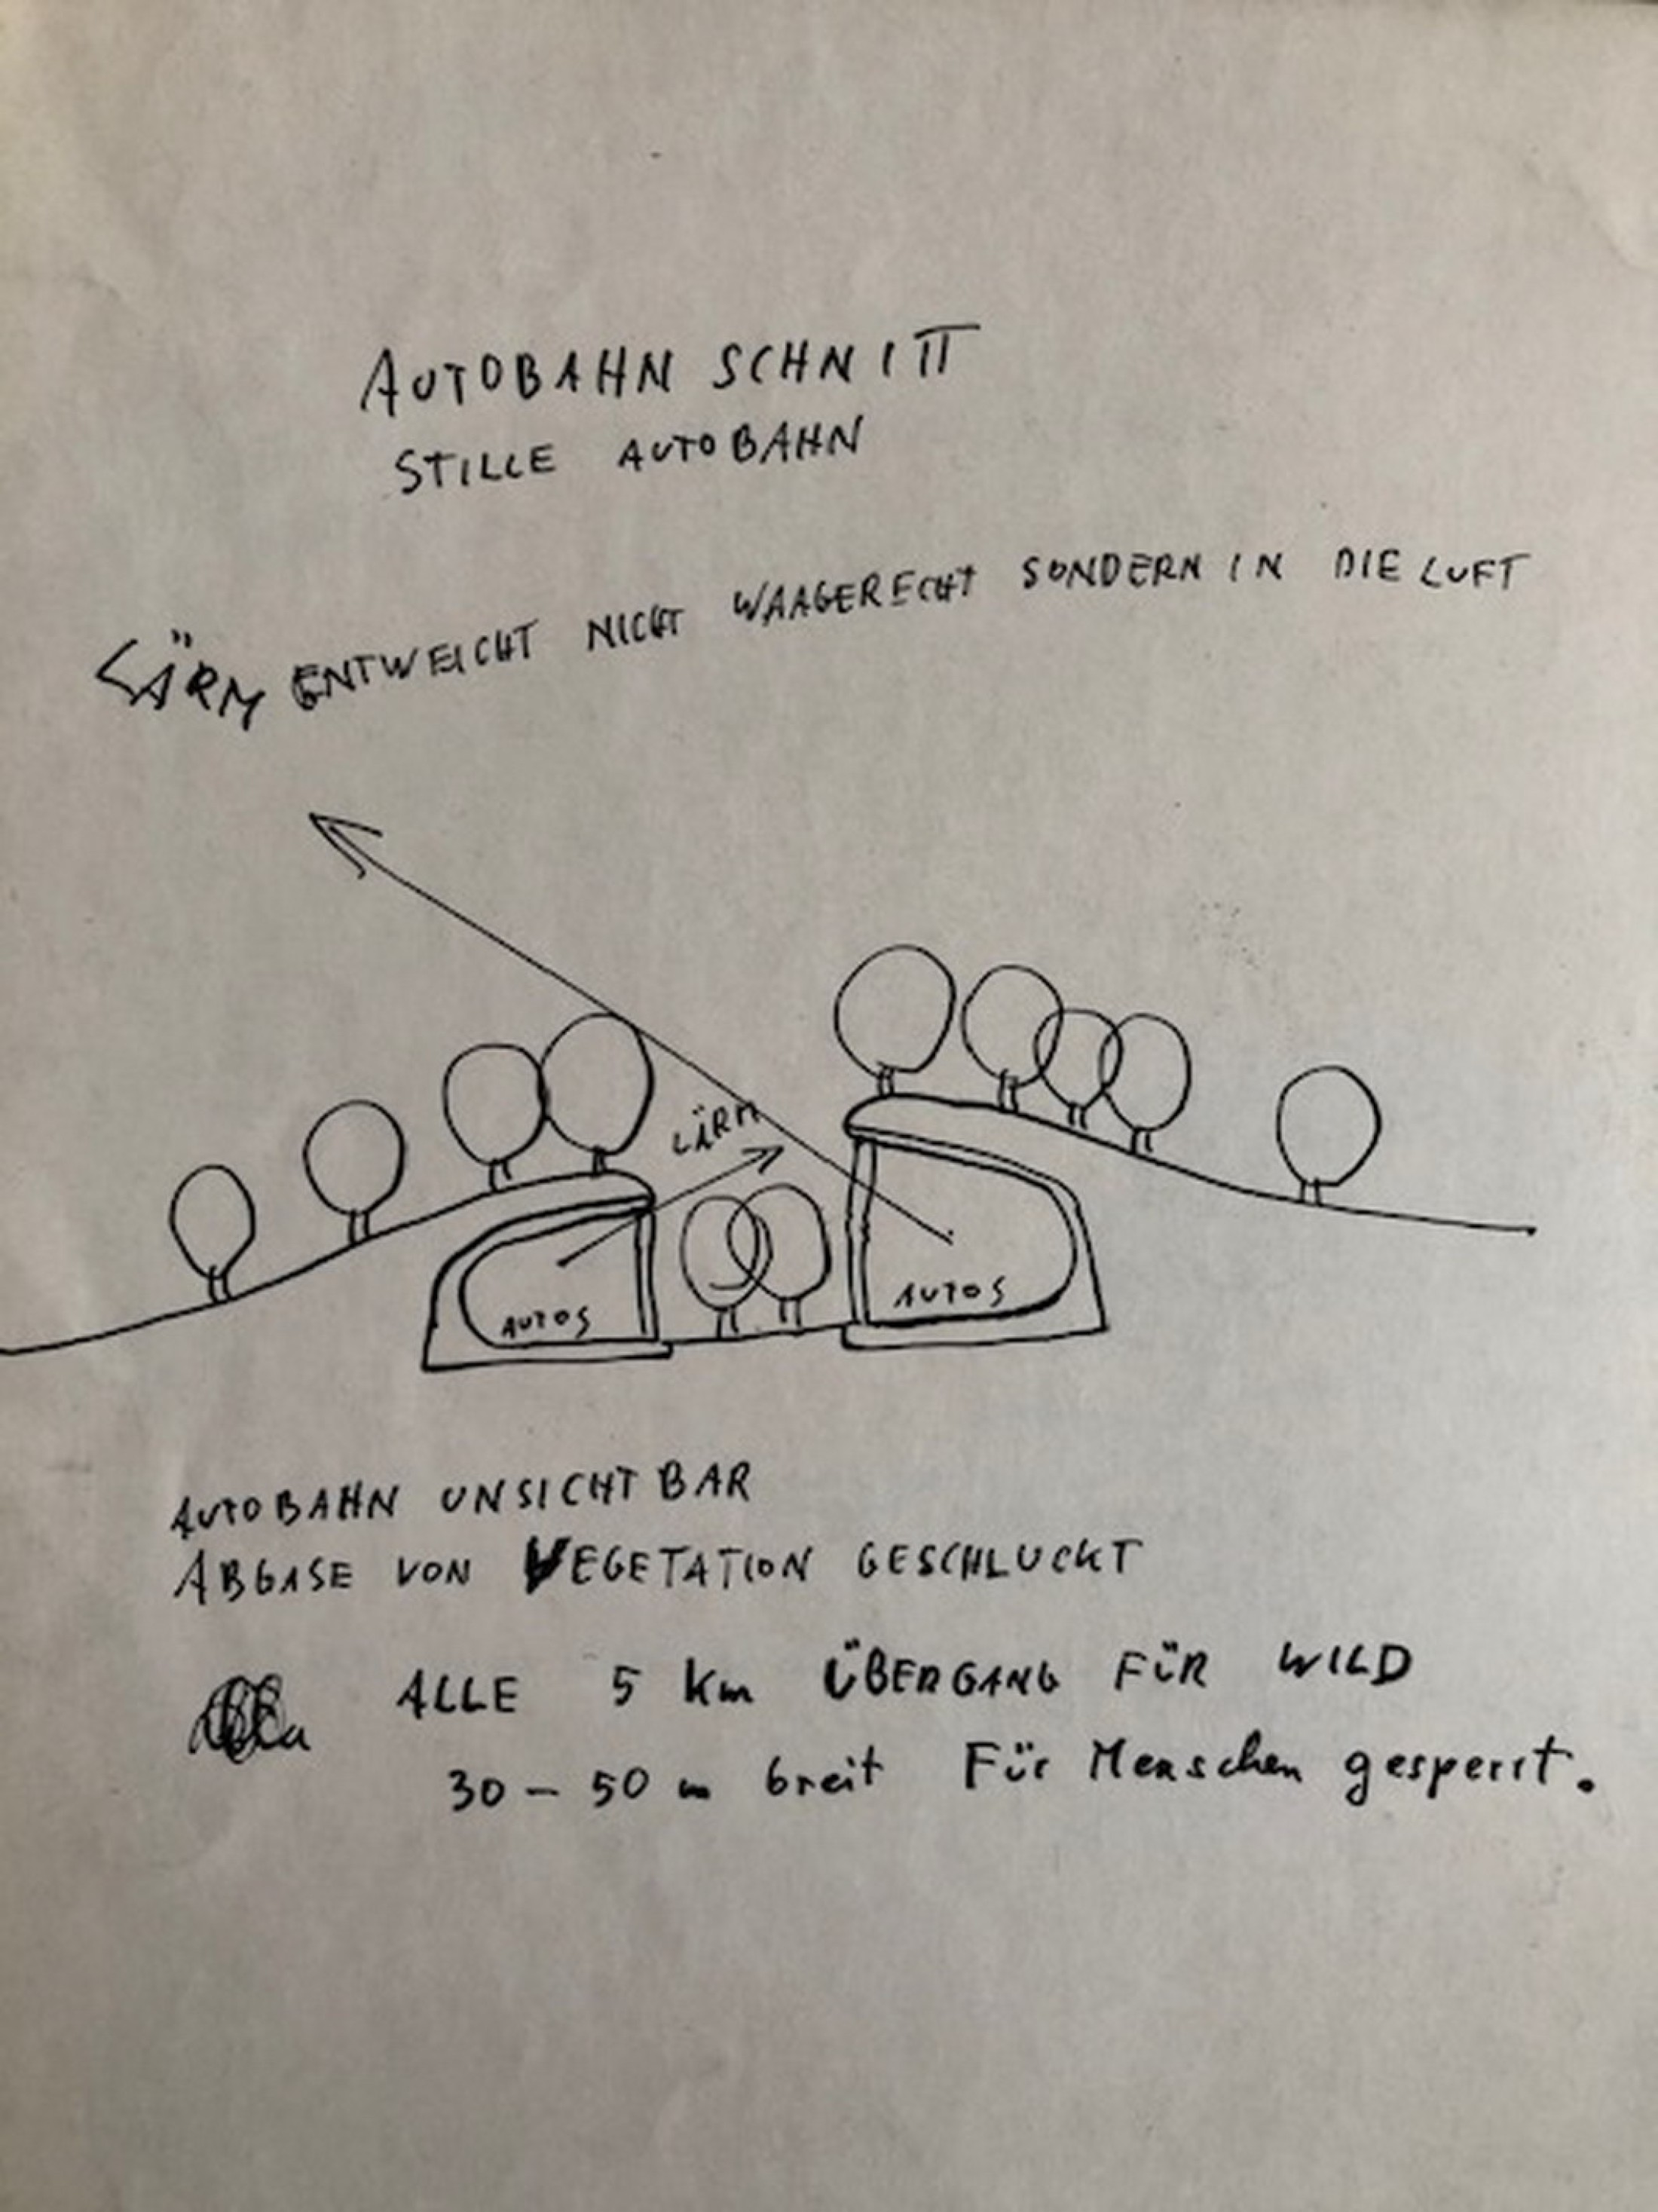 AUTOBAHN SCHNITT
STILLE AUTOBAHN
LÄRM ENTWEICHT NICHT WAAGERECHT SONDERN IN DIE LUFT
LÄRM
AUTOS
AUTOS
AUTOBAHN UNSICHTBAR
ABGASE VON VEGETATION GESCHLUCKT
ALLE 5 Km ÜBERGANG FÜR WILD
30 – 50 m breit Für Menschen gesperrt.